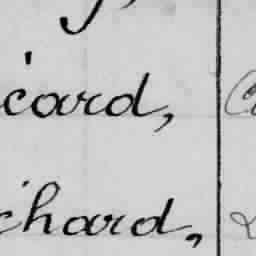 icard,
chard,